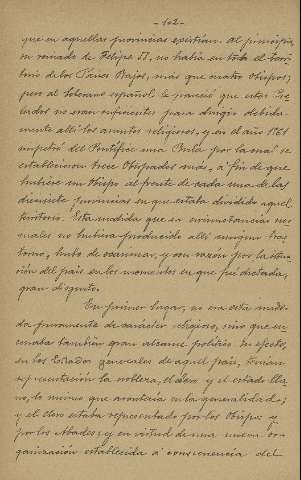 -102-
que en aquellas provincias existian. Al principio
su reinado de Felipe II, no habia en todo el terri-
torio de los Paises Bajos, más que cuatro Obispos;
pero al Soberano español le pareció que estos Pre-
lados no eran suficientes para dirigir debida-
mente allí los asuntos religiosos, y en el año 1561
impetró del Pontífice una Bula por la cual se
establecieron trece Obispados más, á fin de que
hubiese un Obispo al frente de cada una de las
diecisiete provincias en que estaba dividido aquel
territorio. Esta medida que en circunstancias nor-
males no hubiera producido allí ningun tras
torno, hubo de ocasionar, y con razón por la situa-
ción del país en los momentos en que fué dictada,
gran disgusto.
En primer lugar, no era esta medi-
da puramente de carácter religioso, sino que en-
cerraba tambien gran alcance político. En efecto,
en los Estados generales de aquel país, tenian
representación la nobleza, el clero y el estado lla-
no, lo mismo que acontecia en la generalidad;
y el clero estaba representado por los Obispos y
por los Abades; y en virtud de una nueva or-
ganización establecida á consecuencia del